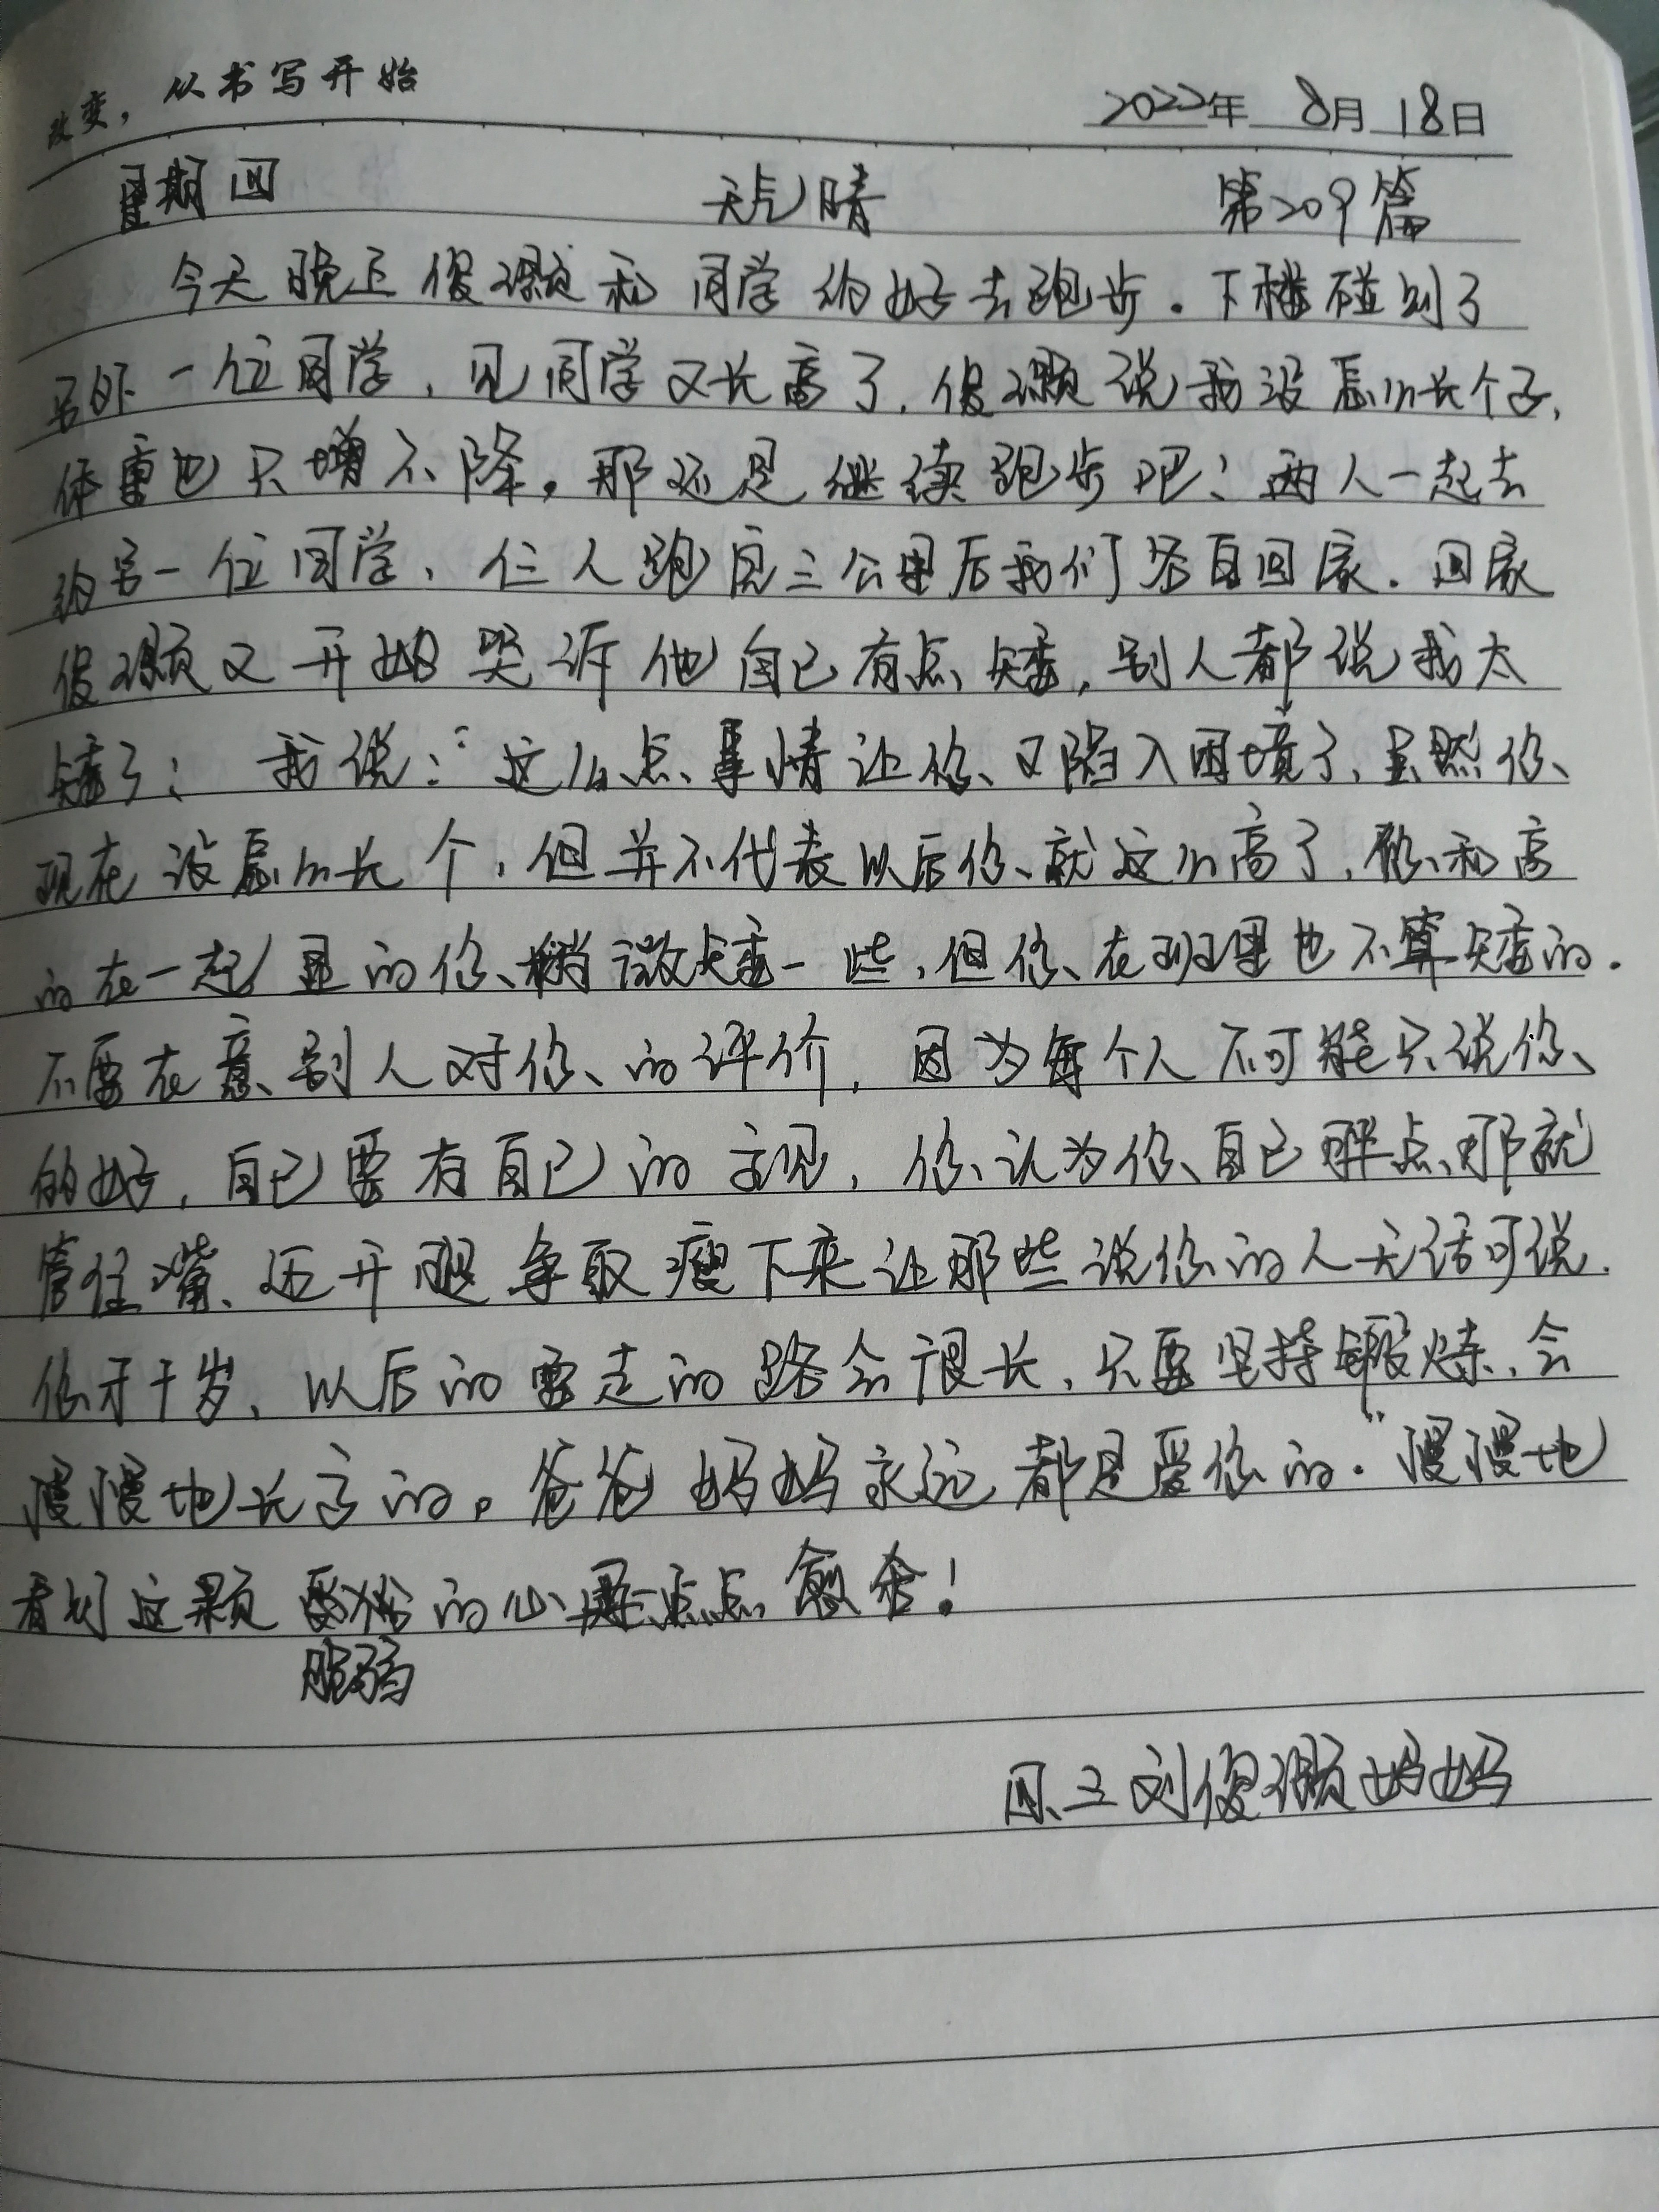 改变，从书写开始
2022年 8月 18日
星期四 天气晴 第209篇
今天晚上俊灏和同学约好去跑步．下楼碰到了
另外一位同学，见同学又长高了．俊灏说我没怎么长个子，
体重也只增不降。那还是继续跑步吧！两人一起去
约另一位同学、仨人跑完三公里后我们各自回家．回家
俊灏又开始哭诉他自己有点矮，别人都说我太
矮了； 我说：“这么点事情让你又陷入困境了、虽然你
现在没怎么长个，但并不代表以后你就这么高了，你和高
的在一起显的你稍微矮一些，但你在班里也不算矮的．
不要在意别人对你的评价，因为每个人不可能只说你
的好，自己要有自己的主见，你认为你自己胖点那就
管住嘴、迈开腿争取瘦下来让那些说你的人无话可说．
你才十岁、以后的要走的路会很长，只要坚持锻炼，会
慢慢地长高的。爸爸妈妈永远都是爱你的．”慢慢地
看到这颗的心一点点愈合！
脆弱
四.三刘俊灏妈妈